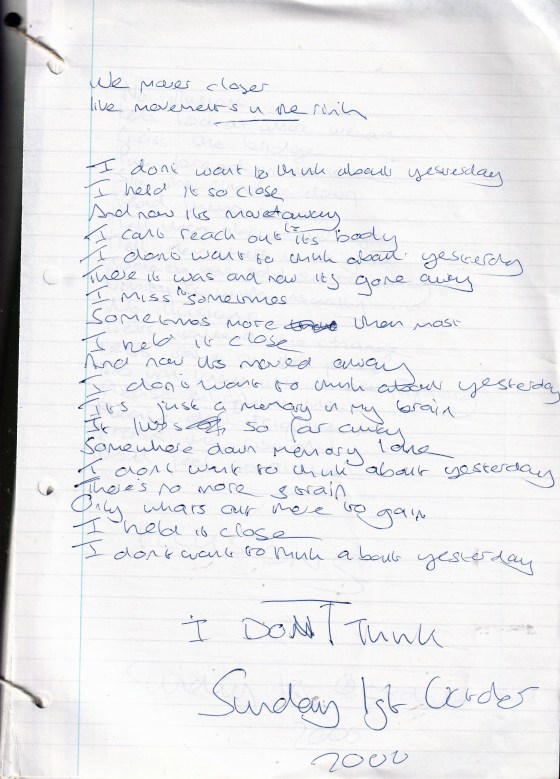 We moves closer
like movements in the
I dont want to think about yesterday
I held it so close
And now its moved away
I cant reach out to its body
I dont want to think about yesterday
There it was and now it's gone away
I miss it sometimes
Sometimes more then most
I held it close
And now its moved away
I don't want to think about yesterday
It's just a memory in my brain
It lives so far away
Somewhere down memory lane
I dont want to think about yesterday
There's no more strain
Only whats out there to gain
I held it close
I dont want to think about yesterday
I DONT Think
Sunday 1st October
2000